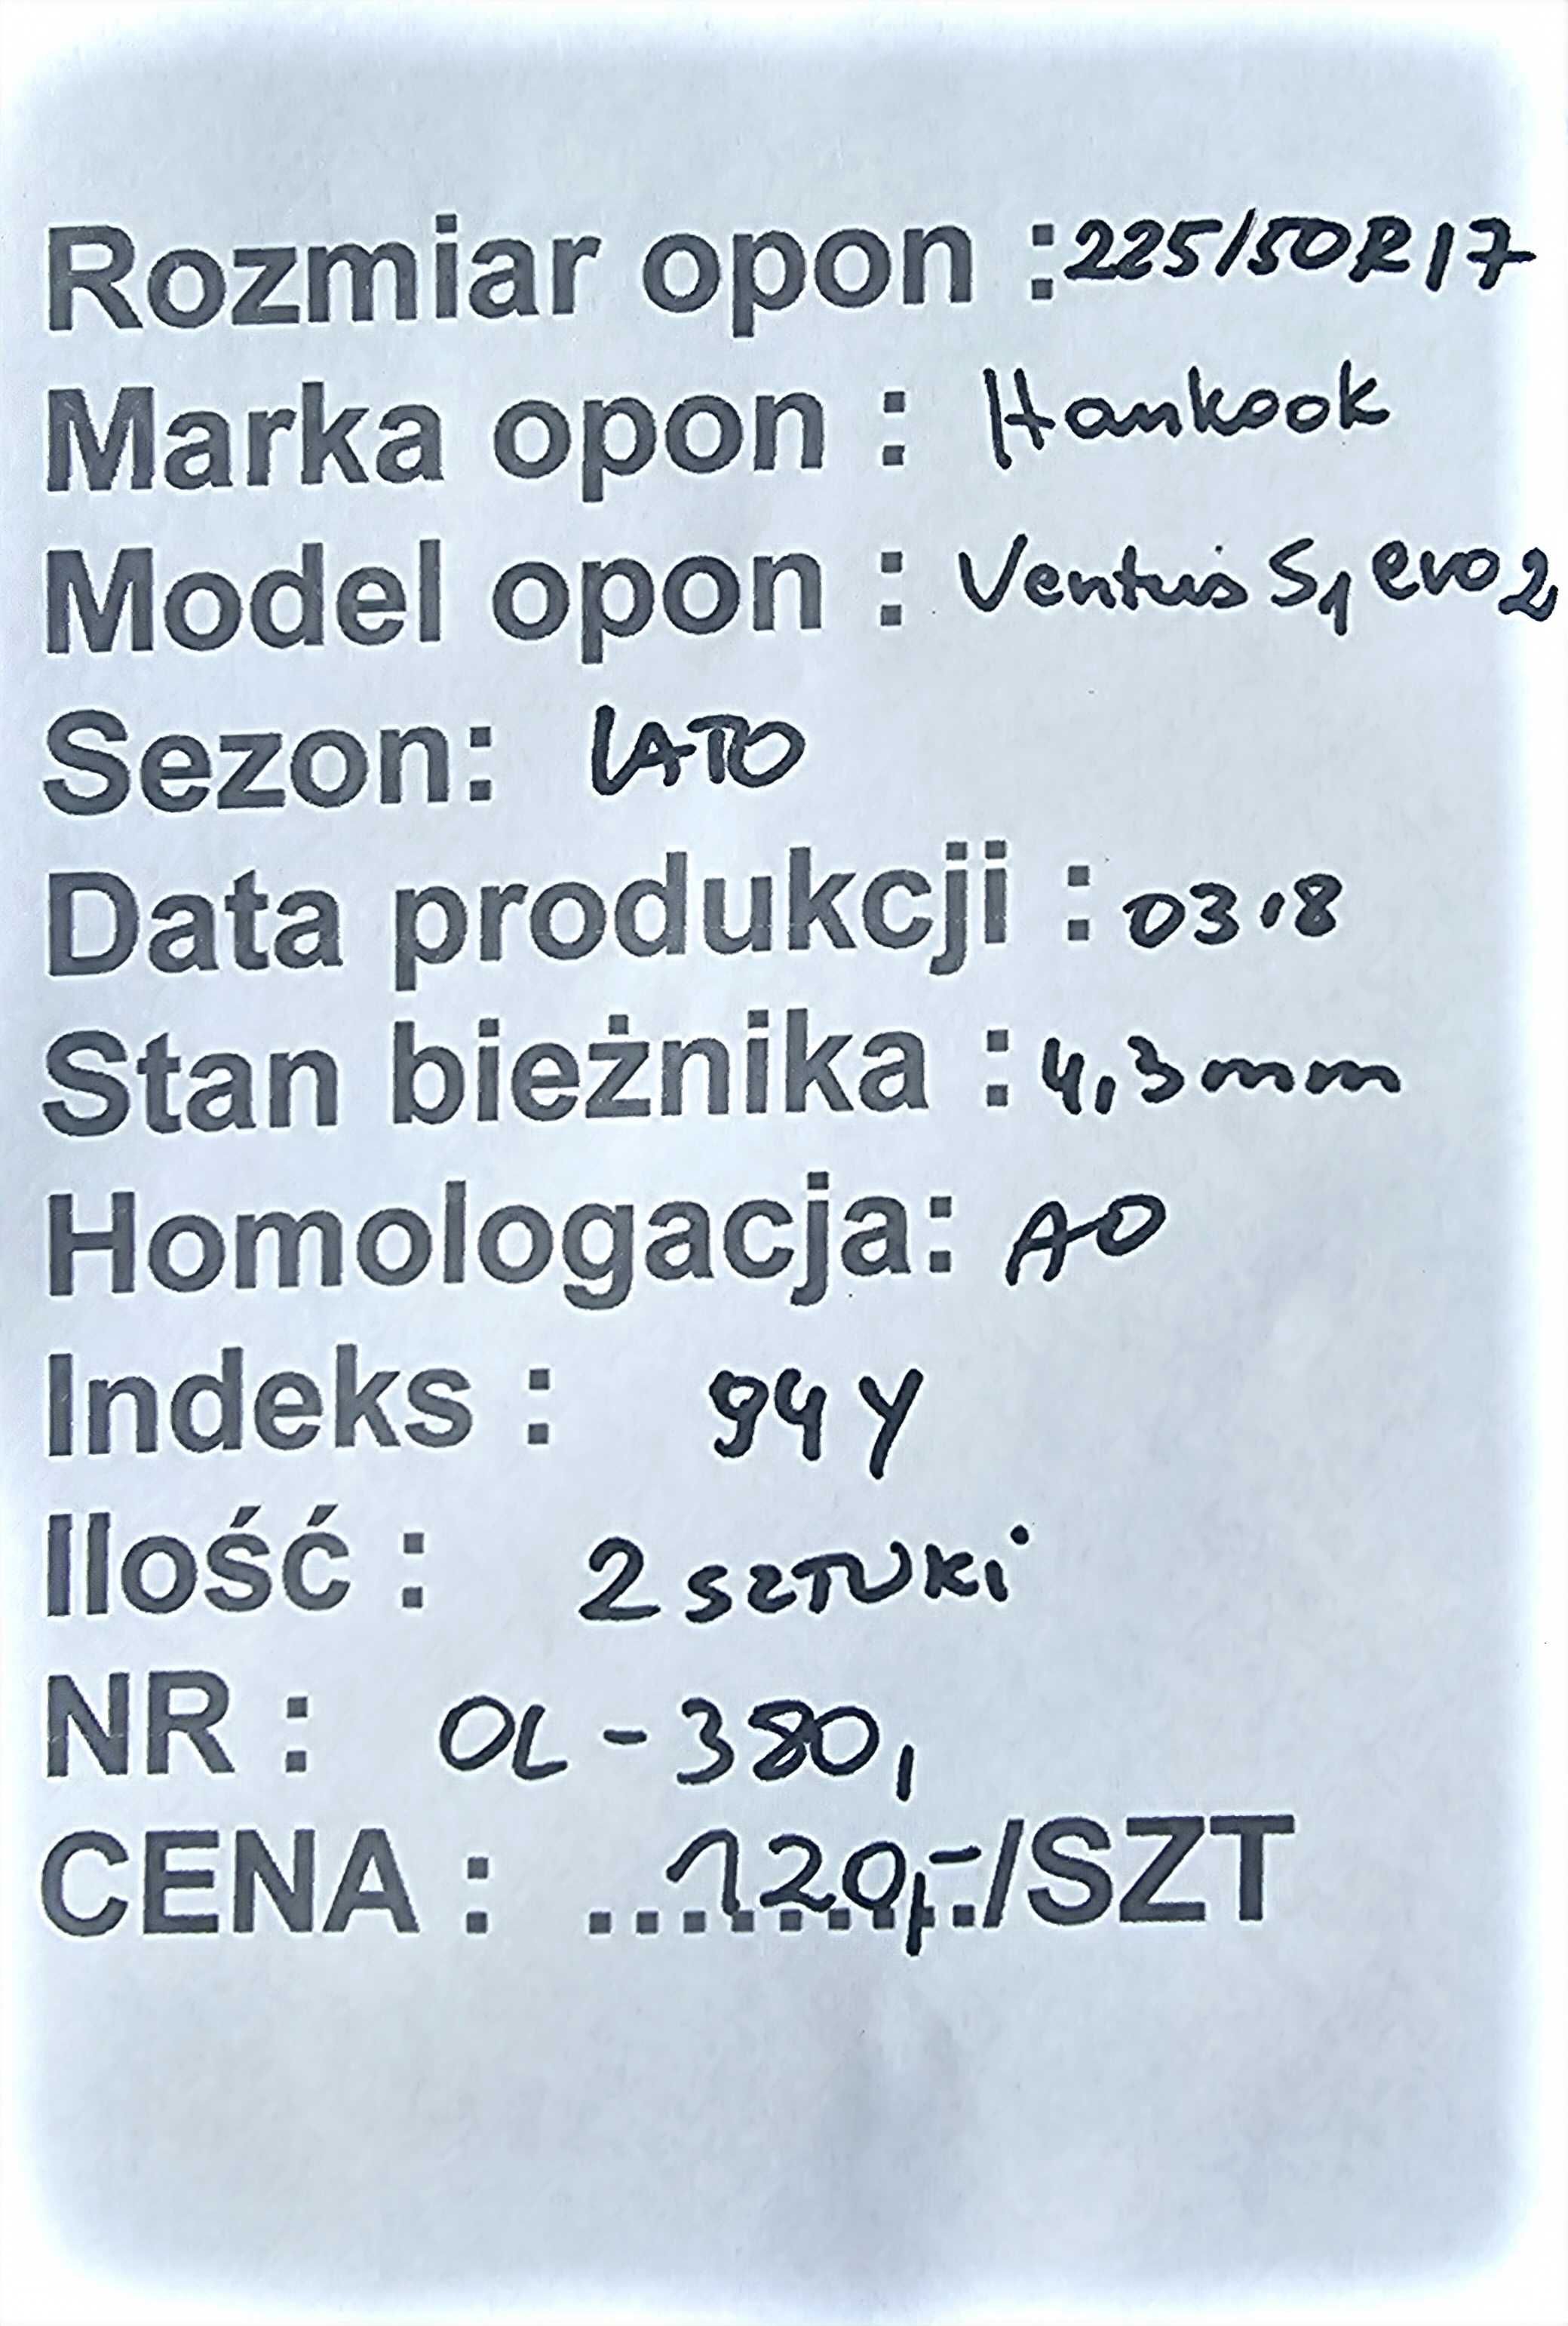 Rozmiar opon : 225/50R17
Marka opon : Hankook
Model opon : Ventus S1 evo2
Sezon: LATO
Data produkcji : 0318
Stan bieżnika : 4,3mm
Homologacja: AO
Indeks : 94Y
Ilość : 2 SZTUKi
NR : OL-380,
CENA : ..120,-./SZT